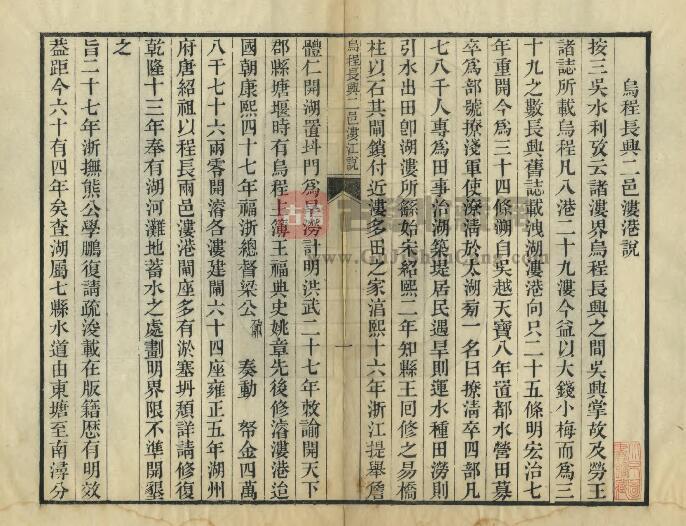 烏程長興二邑漊港說
按三吳水利攷云諸漊界烏程長興之間吳興掌故及勞王
諸誌所載烏程凡八港二十九漊今益以大錢小梅而為三
十九之數長興舊誌載洩湖漊港向只二十五條明宏治七
年重開今為三十四條湖自吳越天寶八年置都水營田募
卒為部號撩淺軍使撩清於太湖旁一名曰撩清卒四部凡
七八千人專為田事治湖築堤居民遇旱則運水種田澇則
引水出田卽湖漊所繇始宋紹熙二年知縣王回修之易橋
柱以石其閘鎖付近漊多田之家淳熙十六年浙江提舉詹
烏程長興二邑漊江說
一
體仁開湖置㪷門為旱澇計明洪武二十七年敕諭開天下
郡縣塘堰時有烏程主簿王福典史姚章先後修濬漊港迨
國朝康熙四十七年福浙總督梁公鼐 奏動 帑金四萬
八千七十六兩零開濬各漊建閘六十四座雍正五年湖州
府唐紹祖以程長兩邑漊港閘座多有淤塞坍頹詳請修復
乾隆十三年奉有湖河灘地蓄水之處劃明界限不準開墾
之
旨二十七年浙撫熊公學鵬復請疏浚載在版籍歷有明效
葢距今六十有四年矣查湖屬七縣水道由東塘至南潯分
古籍收藏网
www.GuJiShouCang.com